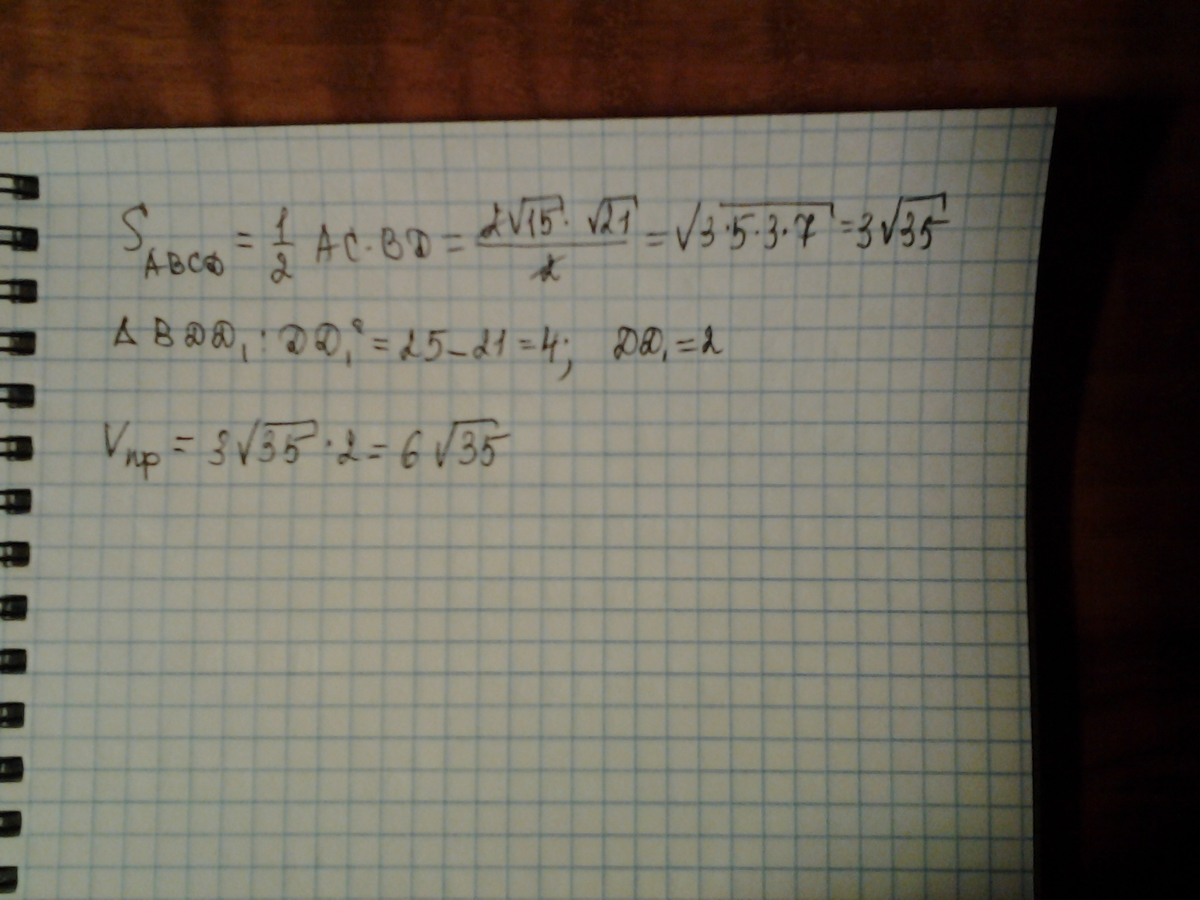 S_ABCD = 1/2 AC·BD = 2√15·√21/2 = √3·5·3·7 = 3√35
Δ BDD₁: DD₁² = 25 − 21 = 4; DD₁ = 2
Vпр = 3√35·2 = 6√35